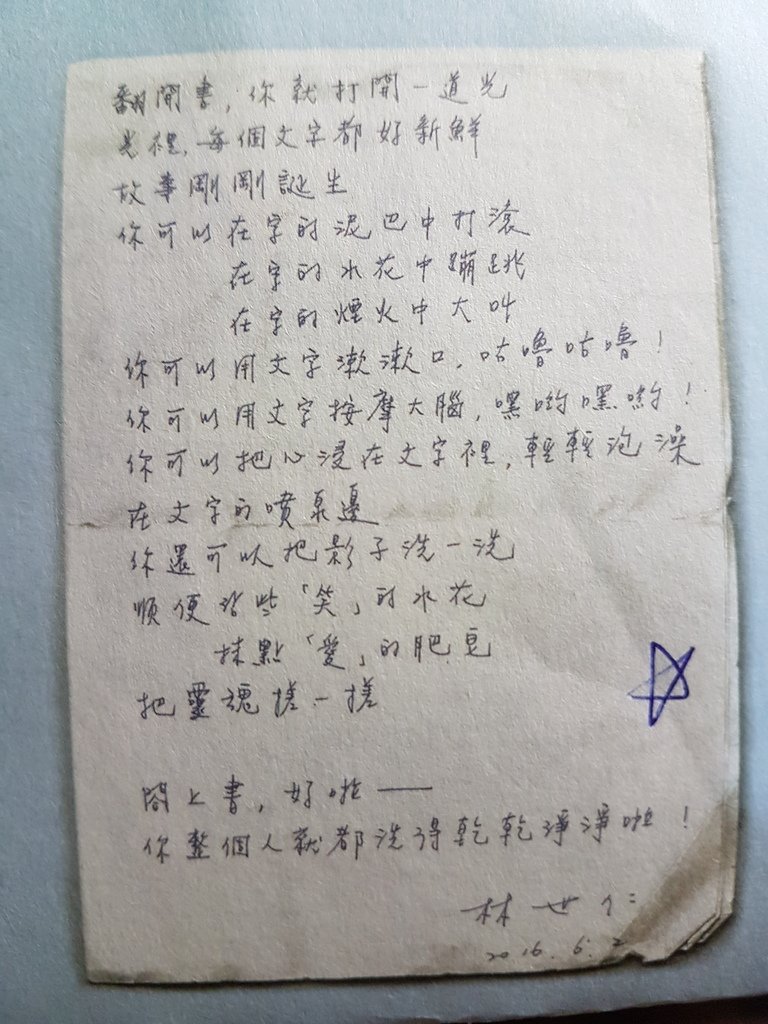 翻開書，你就打開一道光
光裡，每個文字都好新鮮
故事剛剛誕生
你可以在字的泥巴中打滾
在字的水花中蹦跳
在字的煙火中大叫
你可以用文字漱漱口，咕嚕咕嚕！
你可以用文字按摩大腦，嘿喲嘿喲！
你可以把心浸在文字裡，輕輕泡澡
在文字的噴泉邊
你還可以把影子洗一洗
順便沾些「笑」的水花
抹點「愛」的肥皂
把靈魂搓一搓
闔上書，好啦——
你整個人就都洗得乾乾淨淨啦！
林世仁
2016.6.2